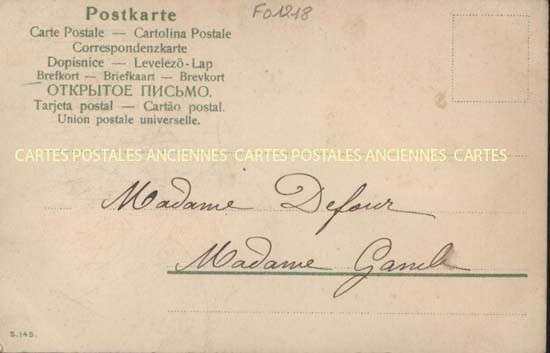 Fo1218
Postkarte
Carte Postale — Cartolina Postale
Correspondenzkarte
Dopisnice — Levelezö-Lap
Brefkort — Briefkaart — Brevkort
ОТКРЫТОЕ ПИСЬМО.
Tarjeta postal — Cartão postal.
Union postale universelle.
CARTES POSTALES ANCIENNES CARTES POSTALES ANCIENNES CARTES
Madame Defour
Madame
S.145.